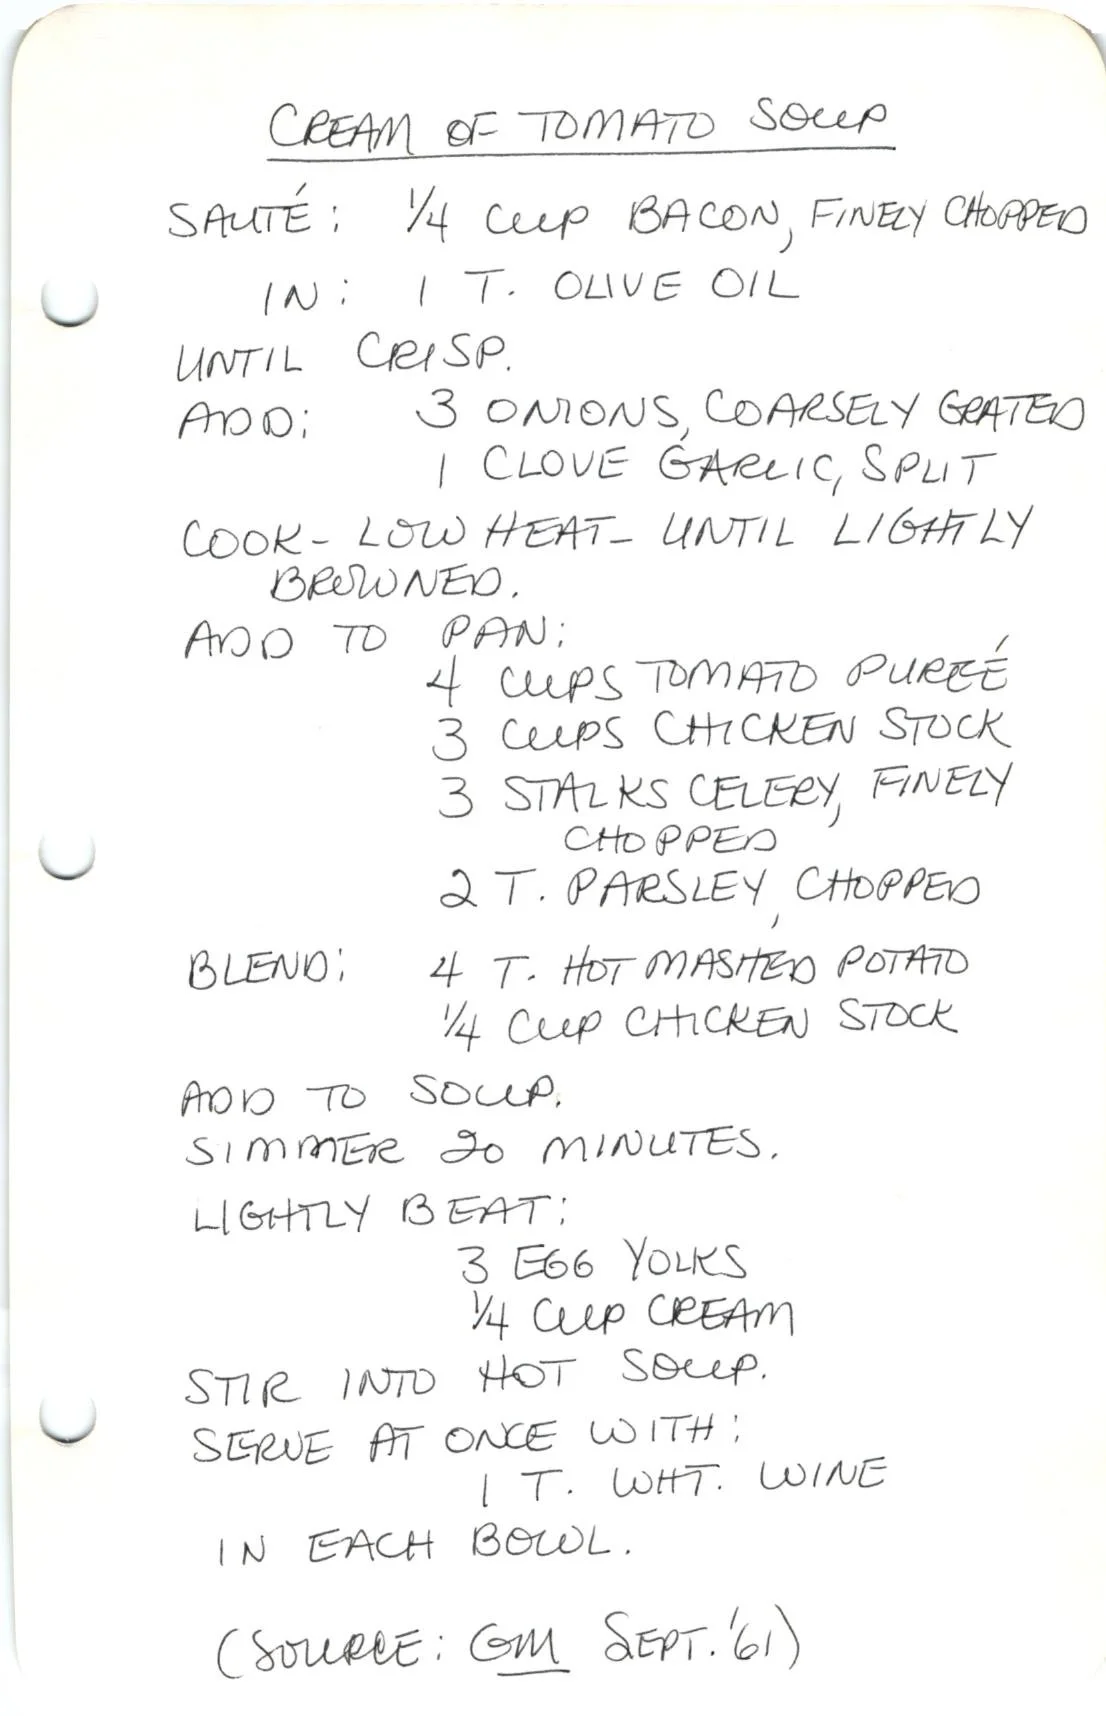 CREAM OF TOMATO SOUP
SAUTÉ: 1/4 CUP BACON, FINELY CHOPPED
IN: 1 T. OLIVE OIL
UNTIL CRISP.
ADD: 3 ONIONS, COARSELY GRATED
1 CLOVE GARLIC, SPLIT
COOK - LOW HEAT - UNTIL LIGHTLY
BROWNED.
ADD TO PAN:
4 CUPS TOMATO PUREÉ
3 CUPS CHICKEN STOCK
3 STALKS CELERY, FINELY
CHOPPED
2 T. PARSLEY, CHOPPED
BLEND: 4 T. HOT MASHED POTATO
1/4 CUP CHICKEN STOCK
ADD TO SOUP.
SIMMER 20 MINUTES.
LIGHTLY BEAT:
3 EGG YOLKS
1/4 CUP CREAM
STIR INTO HOT SOUP.
SERVE AT ONCE WITH:
1 T. WHT. WINE
IN EACH BOWL.
(SOURCE: GM SEPT. '61)